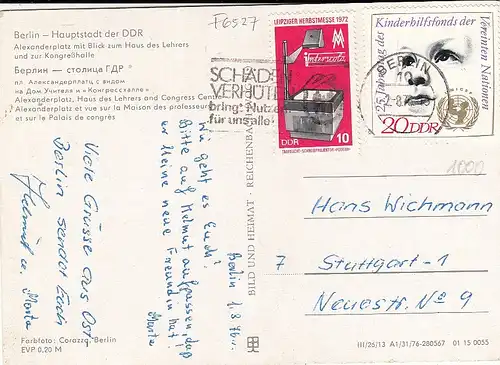 Berlin – Hauptstadt der DDR
Alexanderplatz mit Blick zum Haus des Lehrers
und zur Kongreßhalle
Берлин — столица ГДР
пл. Александерплатц с видом
на Дом Учителя и «Конгрессхалле»
Alexanderplatz, Haus des Lehrers and Congress Center
Alexanderplatz et vue sur la Maison des professeurs
et sur le Palais de congrès
F6527
SCHÄDEN
VERHÜTEN
bringt Nutzen
für uns alle
LEIPZIGER HERBSTMESSE 1972
intermota
DDR 10
25 Jahrestag des Kinderhilfsfonds der Vereinten Nationen
BERLIN
unicef
20 DDR
1000
Viele Grüsse aus Ost-
Berlin senden Euch
Helmut u. Marta
Berlin 1.8.76
Wie geht es Euch?
Bitte auf Helmut aufpassen, daß
er keine neue Freundin hat.
Marta
BILD UND HEIMAT · REICHENBACH
Hans Wichmann
7 Stuttgart-1
Neuestr. No 9
Farbfoto: Corazza, Berlin
EVP 0,20 M
III/26/13 A1/31/76-280567 01 15 0055